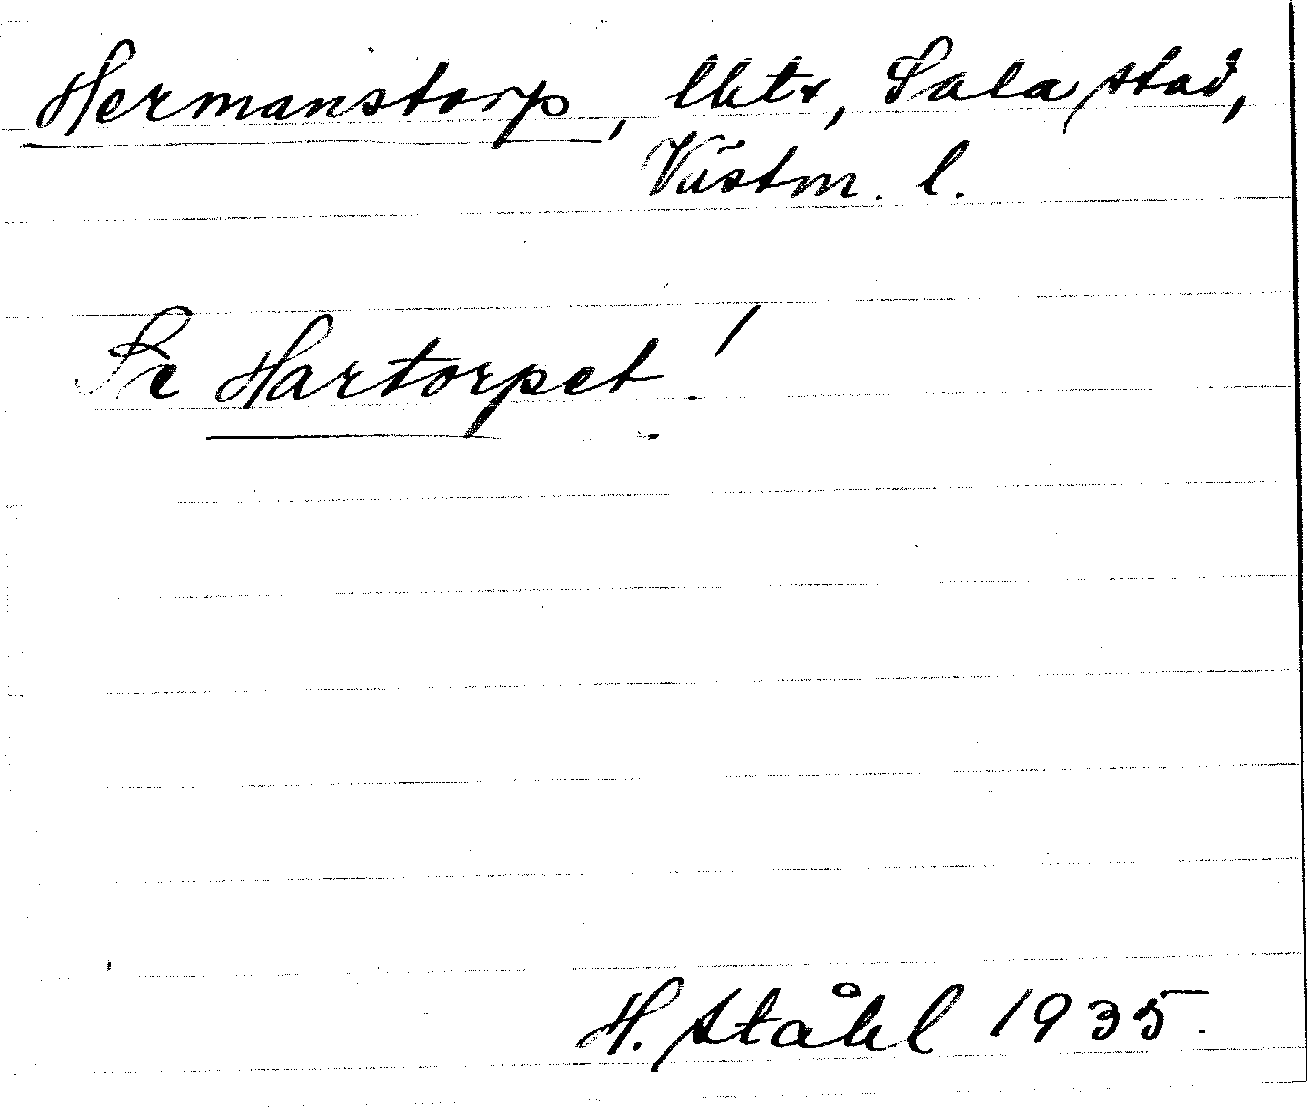 Hermanstorp, lhtr, Sala stad,
Västm. l.
Se Hartorpet!
H. Ståhl 1935.